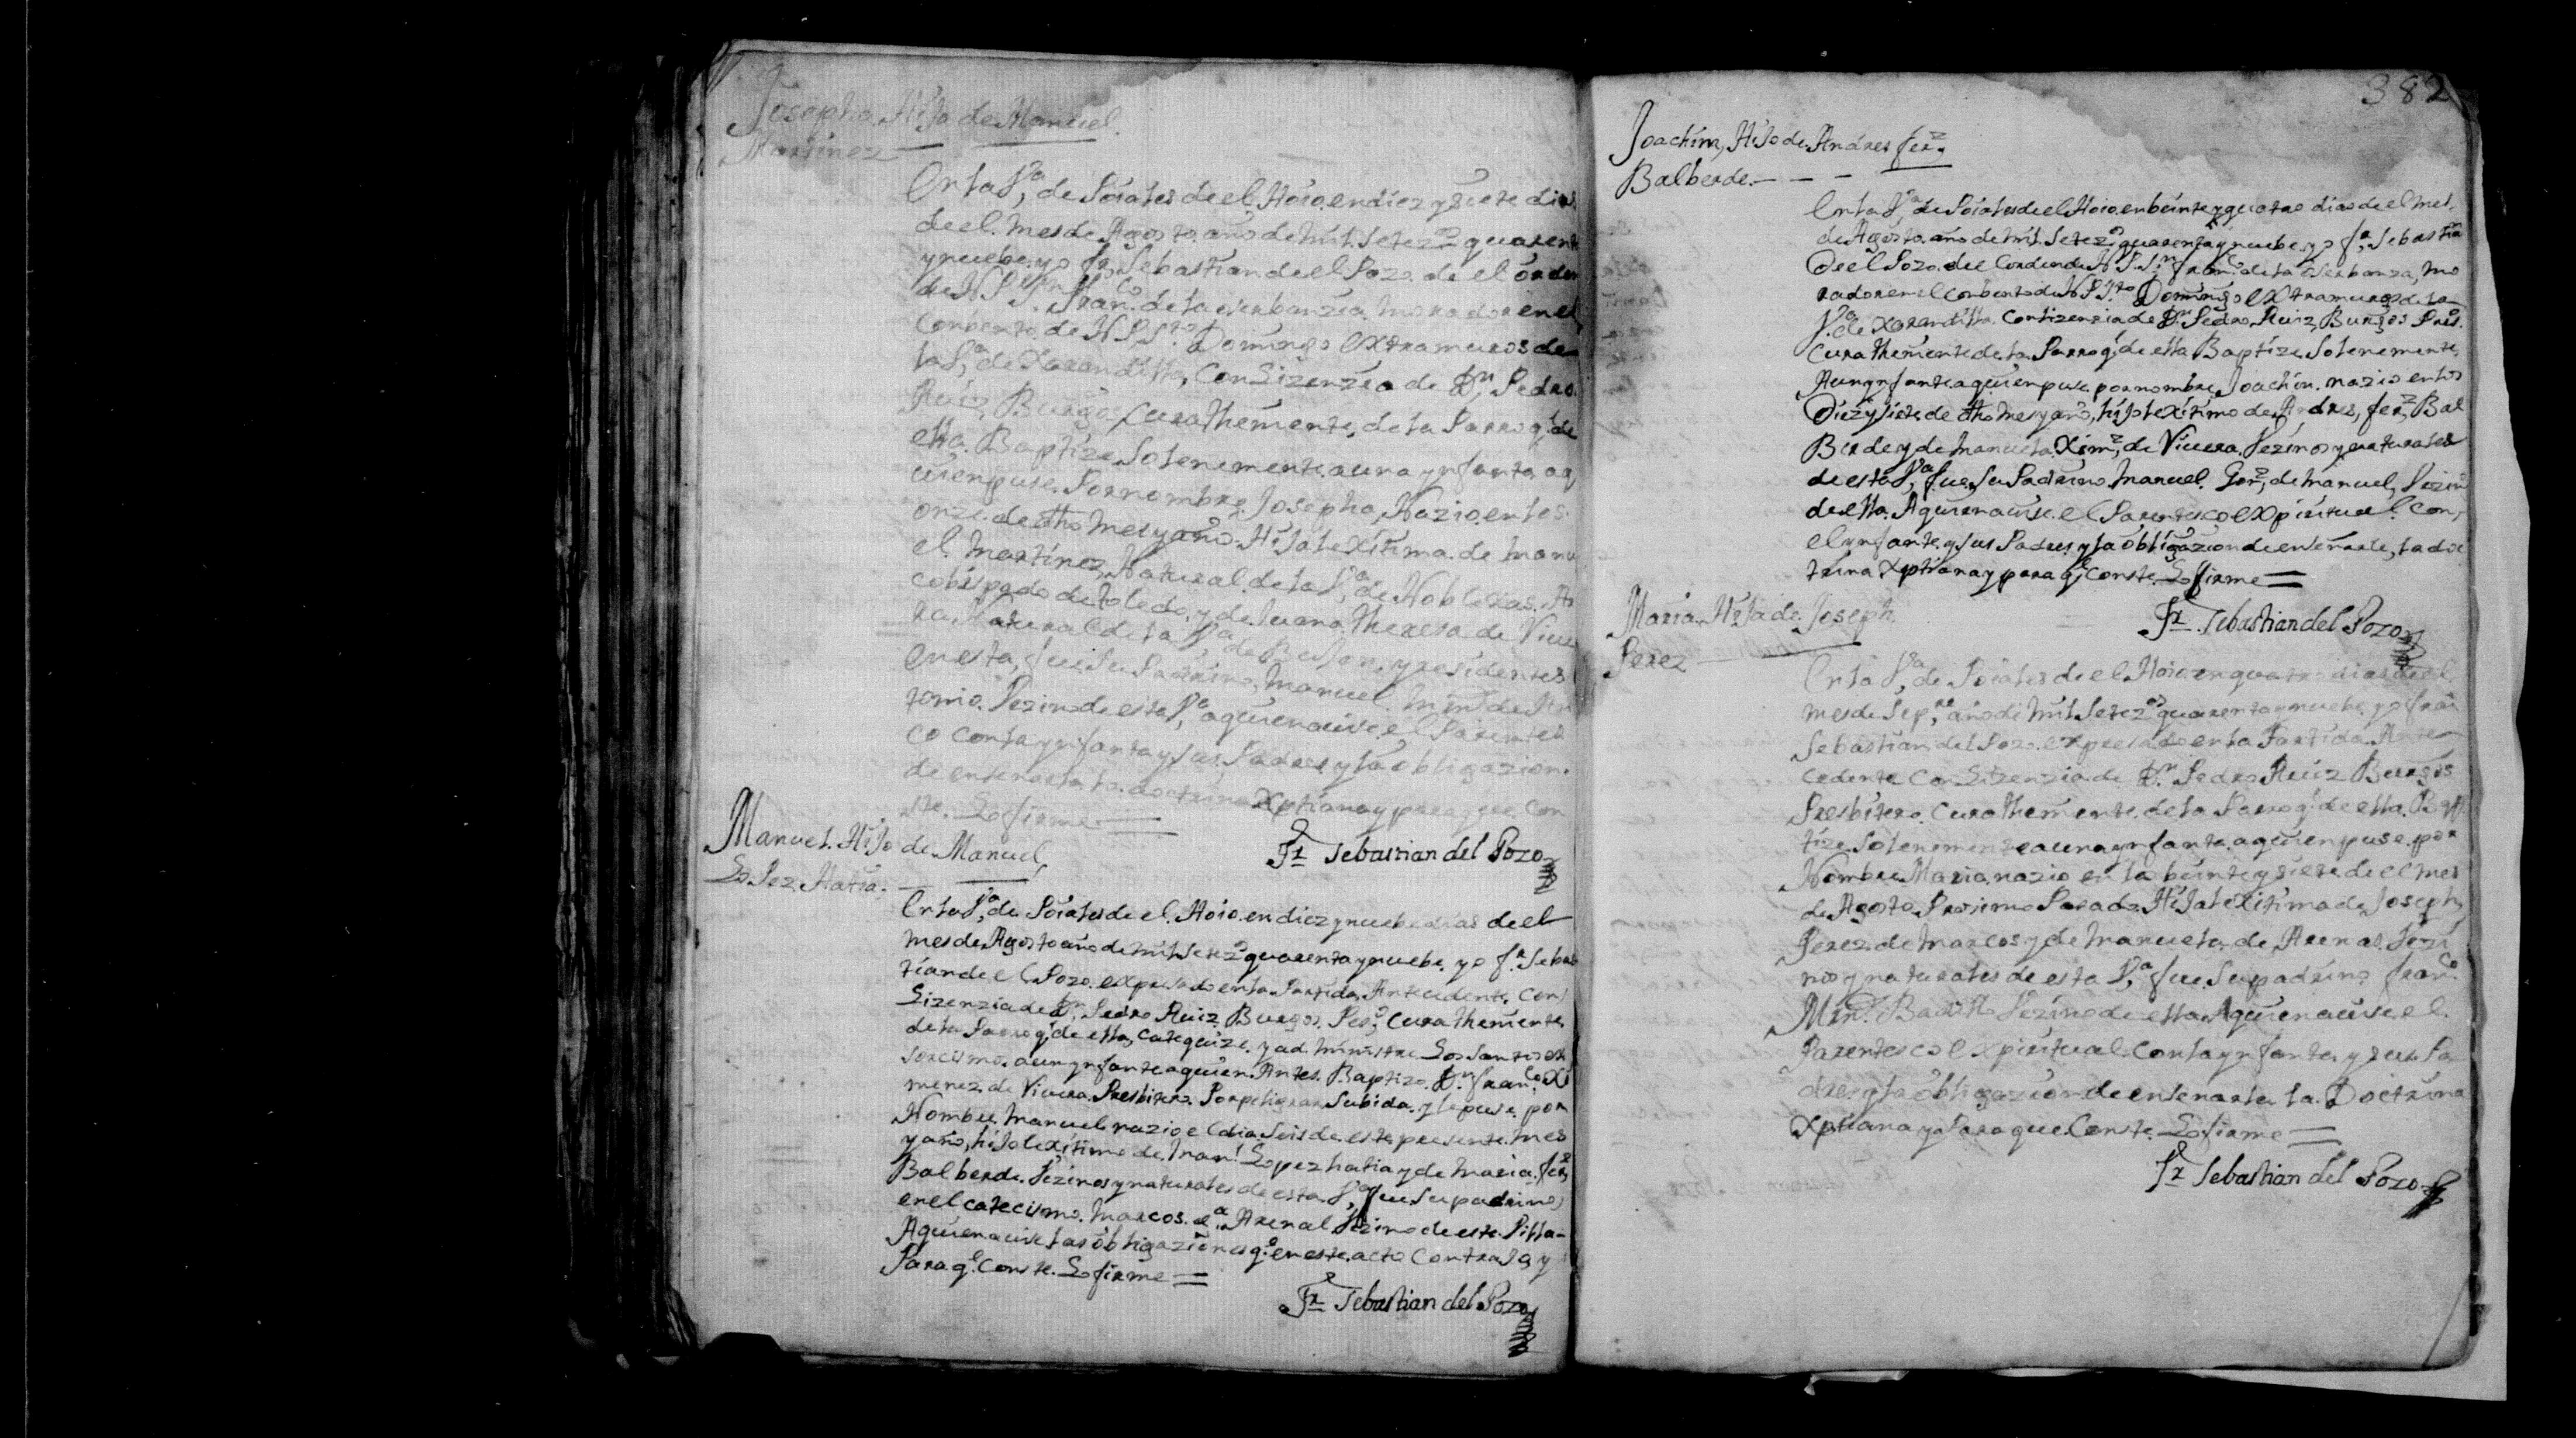 Josepha Hija de Manuel
Martinez
En la Va, de Poiales de el Hoio en diez y siete dias
de el mes de Agosto año de mil Setezos quarenta
y nuebe yo fr, Sebastian de el Pozo de el orden
de N P Sn Franco de la oserbanzia morador en el
Conbento de N P Sto Domingo extramuros de
la Va, de Xarandilla, Con Lizenzia de Dn Pedro
Ruiz Burgos Cura theniente, de la Parroql de
ella Baptize Solenemente a una ynfanta a q
uien puse Por nombre Josepha, Nazio en los
onze de dho mes y año Hija lexitima de Manu
el Martinez, Natural de la Va, de Noblexas Ar
cobispado de toledo, y de Juana theresa de Vive
ra Natural de la Va, de y residentes
en esta, fue Su Padrino, Manuel de An
tonio Vezino de esta Va a quien avise el Parentes
co con la ynfanta y sus Padres y la obligazion
de enseñarla la doctrina Xptiana y para que con
ste Lo firme =
Fr Sebastian del Pozo
Manuel Hijo de Manuel,
Lopez Hatia.
En la Va, de Poiales de el Hoio en diez y nuebe dias de el
mes de Agosto año de mil Setezos quarenta y nuebe yo fr Sebas
tian de el Pozo expresado en la Partida Antecedente Con
Lizenzia de Dn, Pedro Ruiz Burgos Pro, Cura theniente
de la Parroql de ella, Catequize y administre Los Santos ex
sorcismos a un ynfante a quien Antes Baptizo Dn franco Xi
menez de Vivera Presbitero Por peligrar Su bida y le puse por
Nombre Manuel nazio el dia Seis de este presente mes
y año, hijo lexitimo de Manl Lopez hatia y de Maria ferz
Balberde Vezinos y naturales de esta Va, fue Su padrino
en el catecismo Marcos del Arenal Vezino de esta Villa
A quien avise las obligaziones qe en este acto Contraja y
Para qe Conste Lo firme =
Fr Sebastian del Pozo
382
Joachim, Hijo de Andres ferz
Balberde - - -
En la Va, de Poiales de el Hoio en beinte y quatro dias de el mes
de Agosto año de mil Setezos quarenta y nuebe yo fr, Sebastian
De el Pozo de el orden de N P Sn franco de la oserbanza, mo
rador en el Conbento de N P Sto Domingo extramuros de la
Va de Xarandilla Con lizenzia de Dn Pedro Ruiz Burgos Pro
Cura theniente de la Parroql de ella Baptize Solenemente
A un ynfante a quien puse por nombre Joachin nazio en los
Diez y siete de dho mes y año, hijo lexitimo de Andres, ferz Bal
Berde y de Manuela Ximz, de Vivera Vezinos y naturales
de esta Va, fue Su Padrino Manuel Gonz, de Manuel, Vezino
de ella A quien avise el Parentesco expiritual con
el ynfante y sus Padres y la obligazion de enseñarle, la doc
trina Xptiana y para qe Conste Lo firme =
Fr Sebastian del Pozo
Maria Hija de Joseph
Perez
En la Va, de Poiales de el Hoio en quatro dias de el
mes de Sepre año de mil Setezos quarenta y nuebe yo fray
Sebastian del Pozo expresado en la Partida Ante
cedente Con Lizenzia de Dn Pedro Ruiz Burgos
Presbitero Cura theniente de la Parroql de ella Bap
tize Solenemente a una ynfanta a quien puse por
Nombre Maria nazio en los beinte y siete de el mes
de Agosto Proximo Pasado Hija lexitima de Joseph
Perez de Marcos y de Manuela de Arenas Vezi
nos y naturales de esta Va, fue Su padrino franco
Vezino de ella A quien avise el
Parentesco expiritual Con la ynfanta y sus Pa
dres y la obligazion de enseñarla la Doctrina
Xptiana y Para que Conste Lo firme =
Fr Sebastian del Pozo